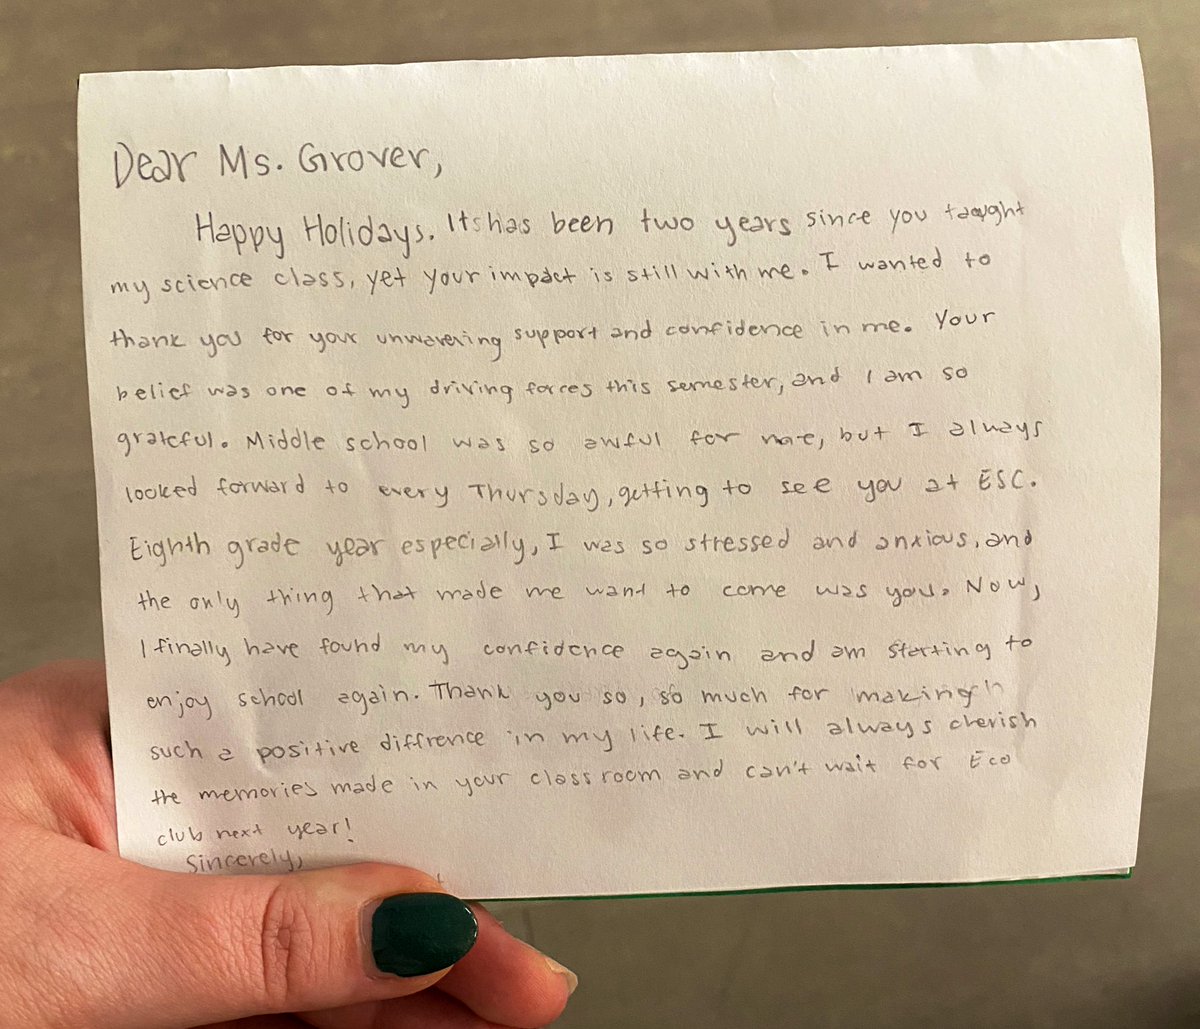 Dear Ms. Grover,
Happy Holidays. Its has been two years since you taught
my science class, yet your impact is still with me. I wanted to
thank you for your unwavering support and confidence in me. Your
belief was one of my driving forces this semester, and I am so
grateful. Middle school was so awful for me, but I always
looked forward to every Thursday, getting to see you at ESC.
Eighth grade year especially, I was so stressed and anxious, and
the only thing that made me want to come was you. Now,
I finally have found my confidence again and am starting to
enjoy school again. Thank you so, so much for making
such a positive diffrence in my life. I will always cherish
the memories made in your classroom and can't wait for Eco
club next year!
Sincerely,